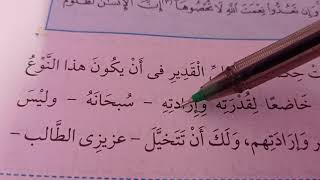 وَإِن تَعُدُّوا نِعْمَتَ اللَّهِ لَا تُحْصُوهَا إِنَّ الْإِنسَانَ لَظَلُومٌ
الْقَدِيرِ فى أَنْ يَكُونَ هذا النَّوْعُ
خَاضِعًا لِقُدْرَتِهِ وَإِرَادَتِهِ - سُبحَانَهُ - وليْسَ
وَإِرَادَتِهم، وَلَكَ أَنْ تَتَخيَّلَ - عَزِيزِى الطَّالب -